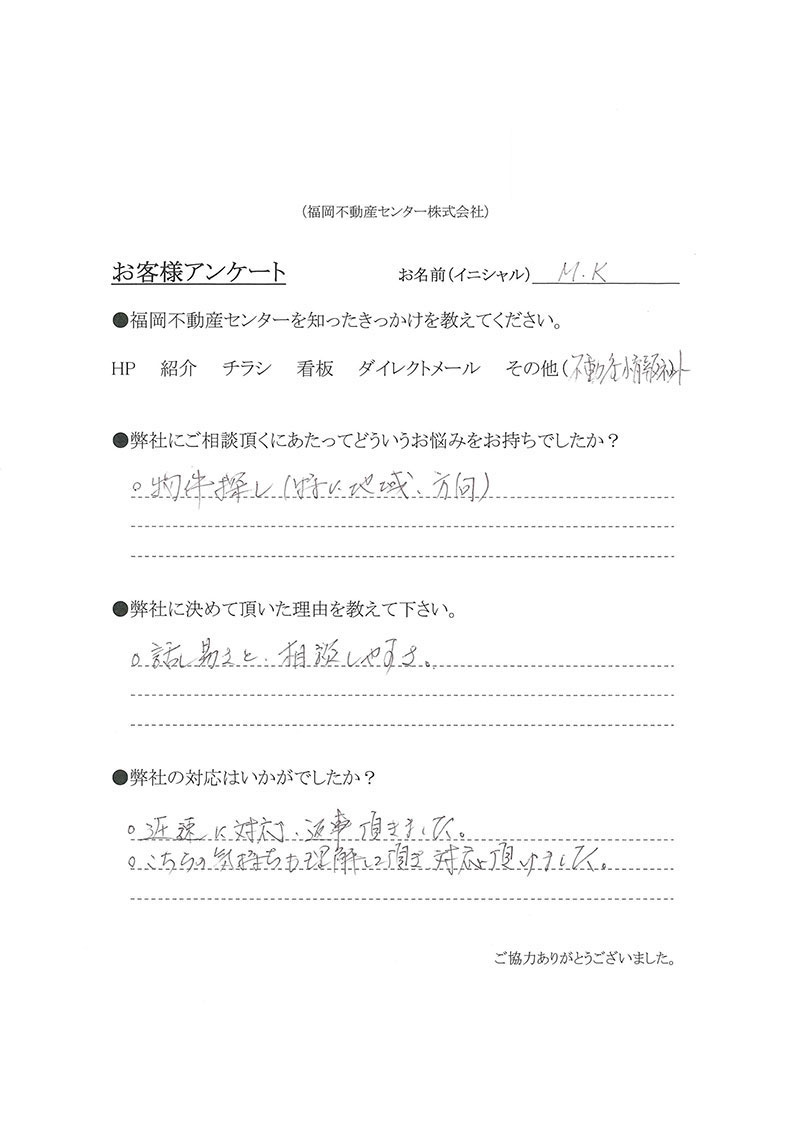 （福岡不動産センター株式会社）
お客様アンケート お名前（イニシャル） M.K
●福岡不動産センターを知ったきっかけを教えてください。
HP 紹介 チラシ 看板 ダイレクトメール その他（不動産情報サイト
●弊社にご相談頂くにあたってどういうお悩みをお持ちでしたか？
○物件探し（特に地域、方向）
●弊社に決めて頂いた理由を教えて下さい。
○話し易さと、相談しやすさ。
●弊社の対応はいかがでしたか？
○迅速に対応、返事頂きました。
○こちらの気持ちも理解して頂き対応頂けました。
ご協力ありがとうございました。